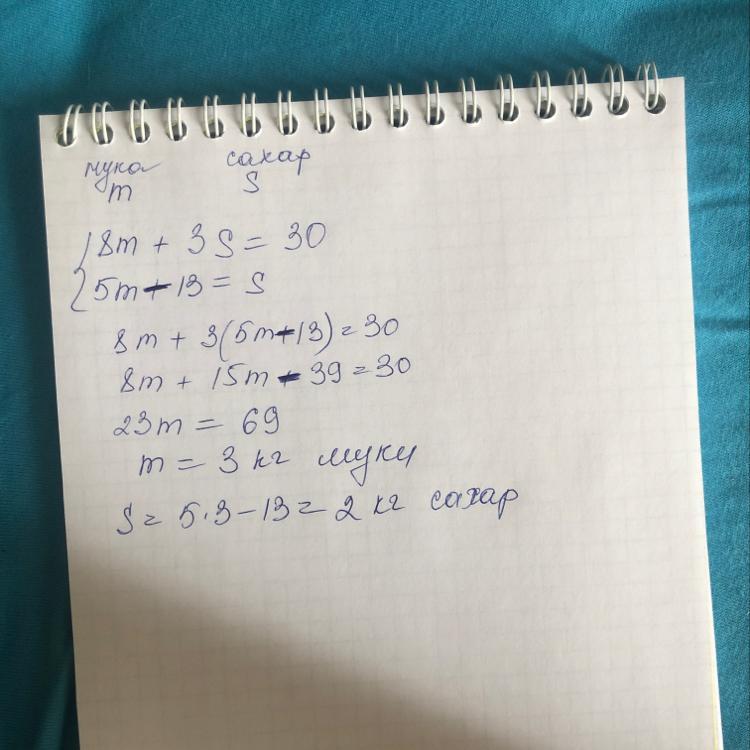 мука сахар
m S
8m + 3S = 30
5m - 13 = S
8m + 3(5m-13) = 30
8m + 15m - 39 = 30
23m = 69
m = 3 кг муки
S = 5·3 - 13 = 2 кг сахар